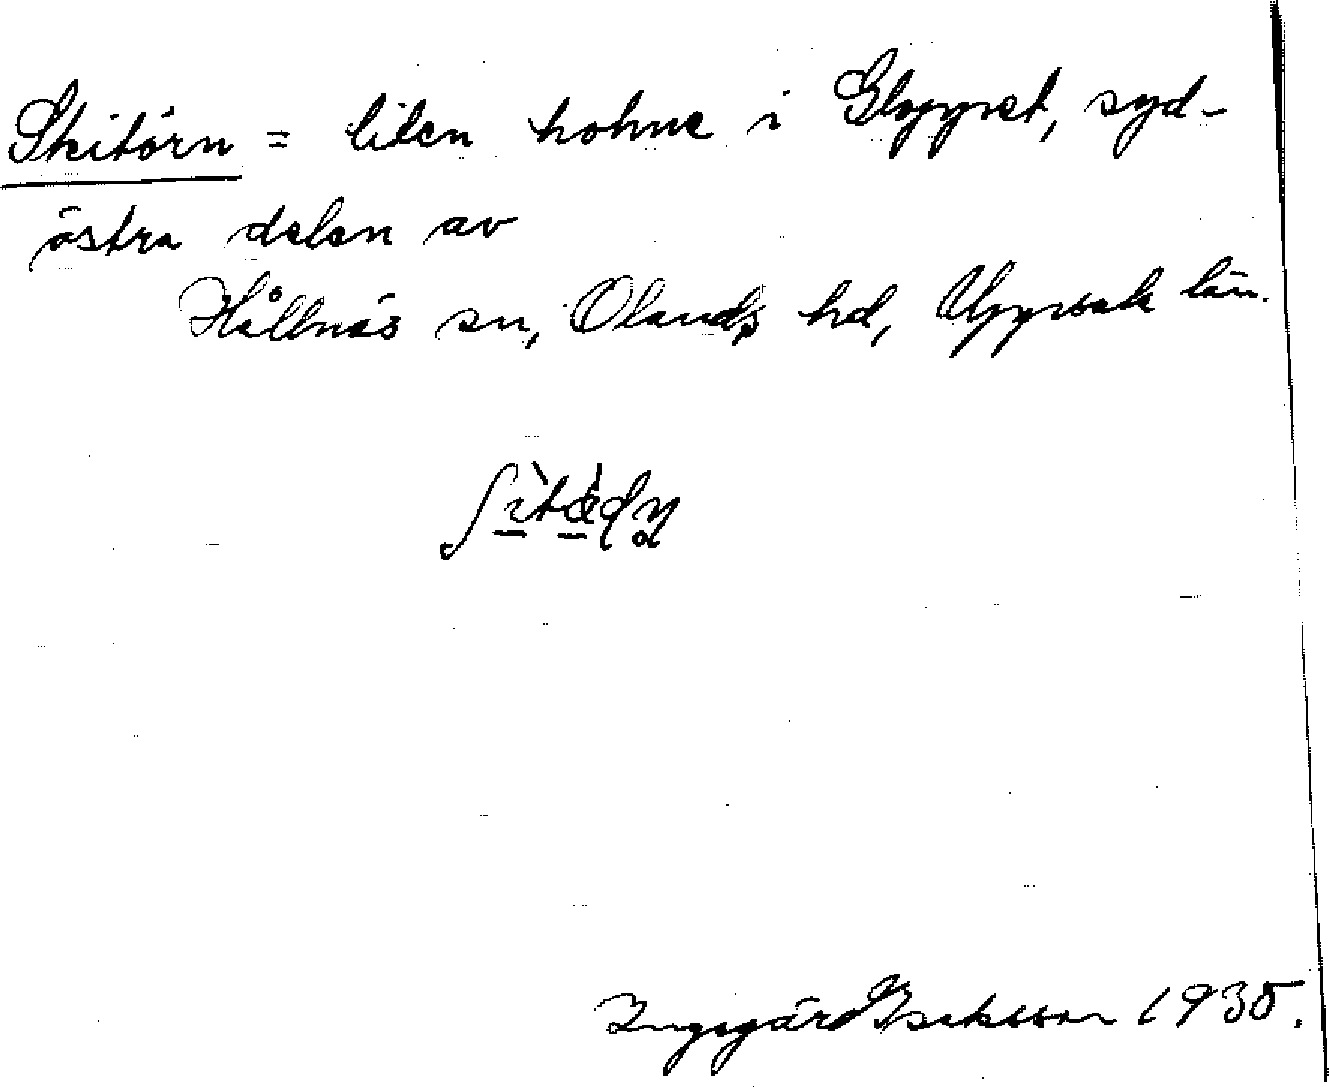 Skitörn = liten holme i Sloppret, syd-
östra delen av
Hållnäs sn, Olands hd, Uppsala län.
Ingegärd Isaksson 1935.